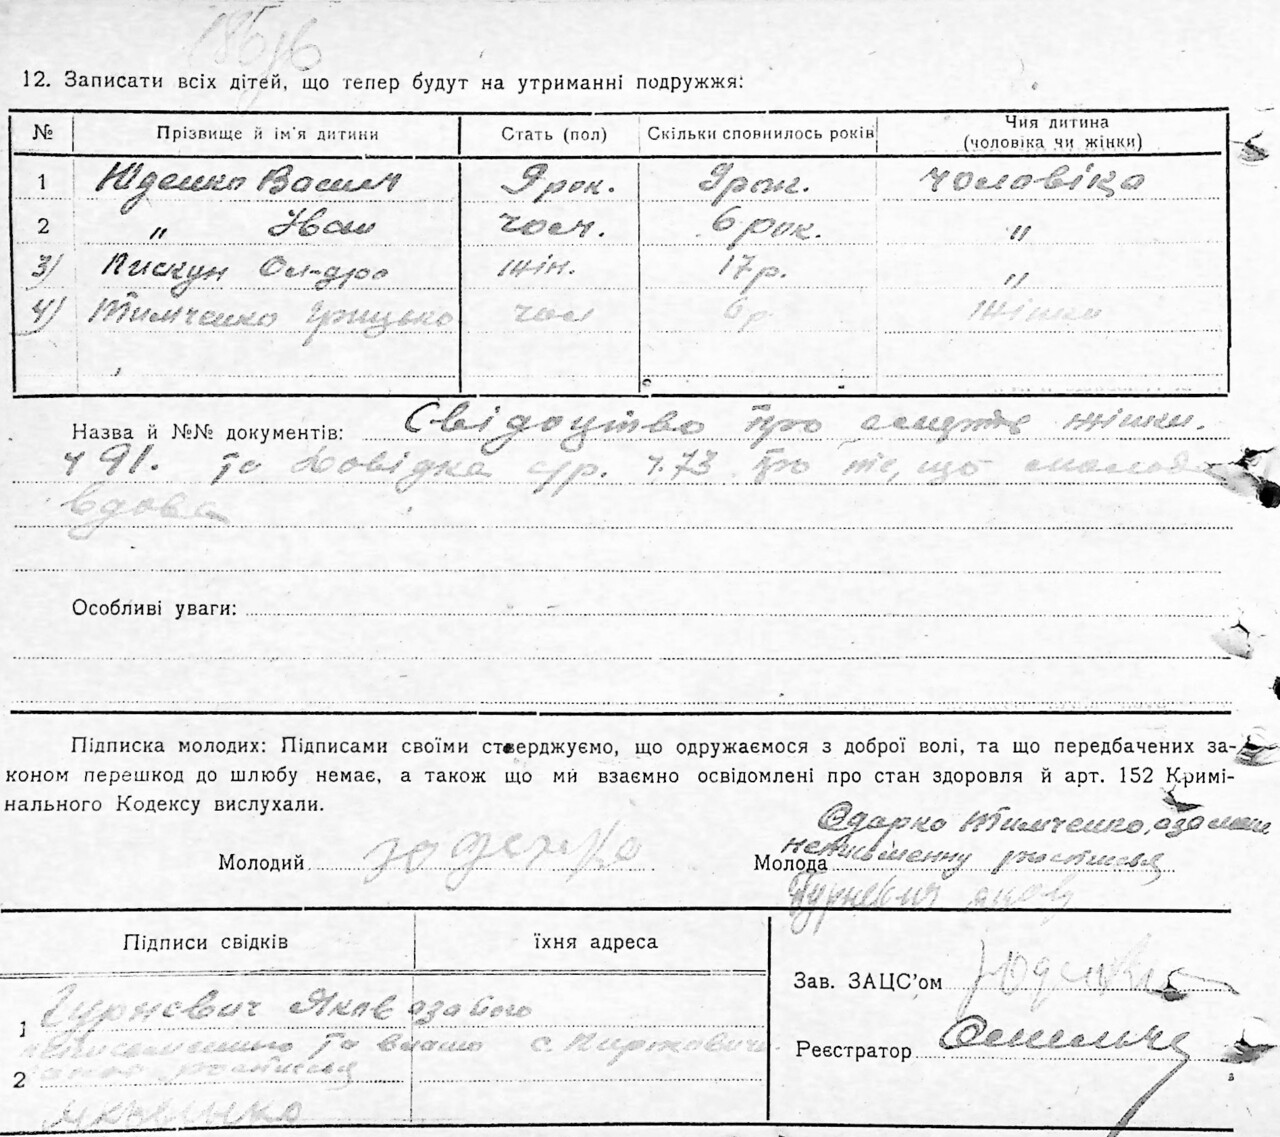 12. Записати всіх дітей, що тепер будут на утриманні подружжя:
№ Прізвище й ім'я дитини Стать (пол) Скільки сповнилось років Чия дитина (чоловіка чи жінки)
1 Юденко Васил 9 рок. 9 рок. чоловіка
2 " Іван чол. 6 рок. "
3) Пискун Ол-дра жін. 17 р. "
4) Тимченко Грицько чол 6 р Жінки
Назва й №№ документів: Свідоцтво про смерть жінки.
ч 91. та Довідка с/р. ч. 73 про те, що молода
вдова
Особливі уваги:
Підписка молодих: Підписами своїми стверджуємо, що одружаємося з доброї волі, та що передбачених за-
коном перешкод до шлюбу немає, а також що ми взаємно освідомлені про стан здоров'я й арт. 152 Кримі-
нального Кодексу вислухали.
Одарка Тимченко, а за
неписьменну
Молодий Юденко Молода
Гурневич Яков
Підписи свідків їхня адреса
Зав. ЗАЦС'ом Юденко
1 Гурневич Яков а за його
Реєстратор
неписьменного та
2